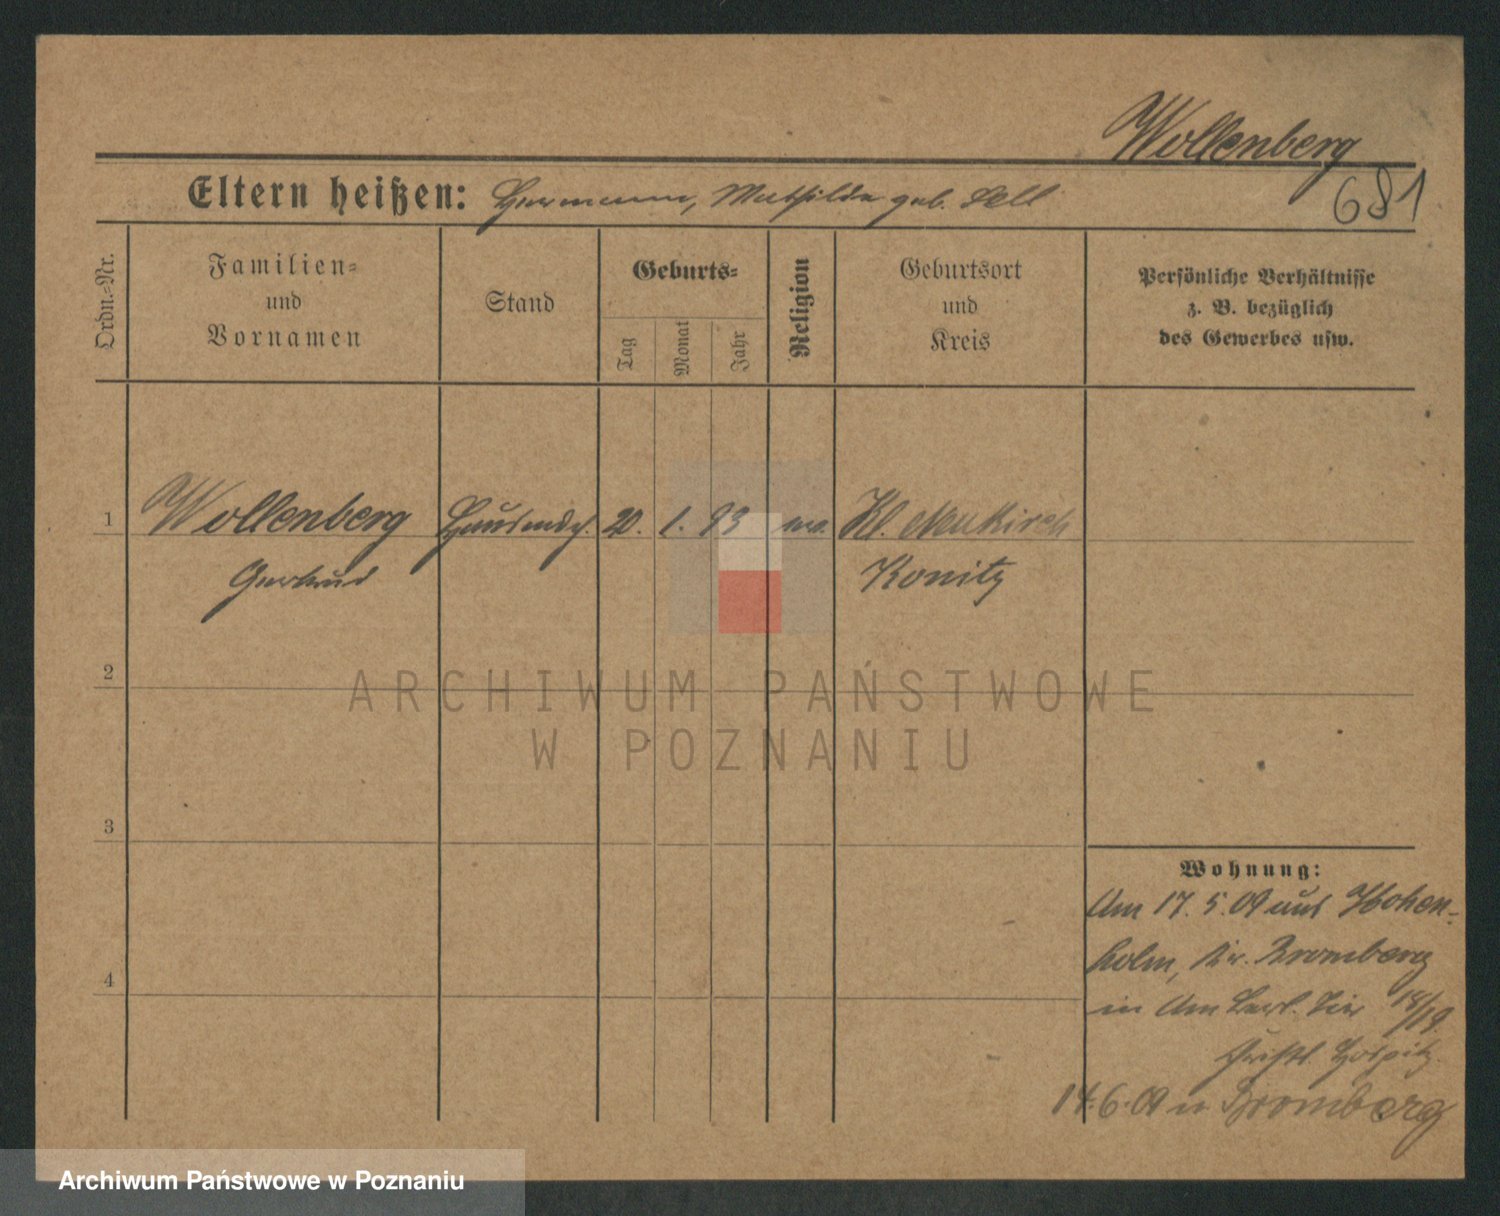 Wollenberg
681
Eltern heißen: Hermann, Mathilde geb. Sell
Ordn.-Nr.
Familien-
und
Vornamen
Stand
Geburts-
Tag
Monat
Jahr
Religion
Geburtsort
und
Kreis
Persönliche Verhältnisse
z. B. bezüglich
des Gewerbes usw.
1 Wollenberg 20. 1. 93 Kl. Neukirch
Gertrud Konitz
2
ARCHIWUM PAŃSTWOWE
W POZNANIU
3
Wohnung:
Am 17. 5. 09 aus Hohen-
holm, Kr. Bromberg
4
in Am Berl. Tor 18/19.
Christl. Hospitz.
14.6.09 n Bromberg
Archiwum Państwowe w Poznaniu